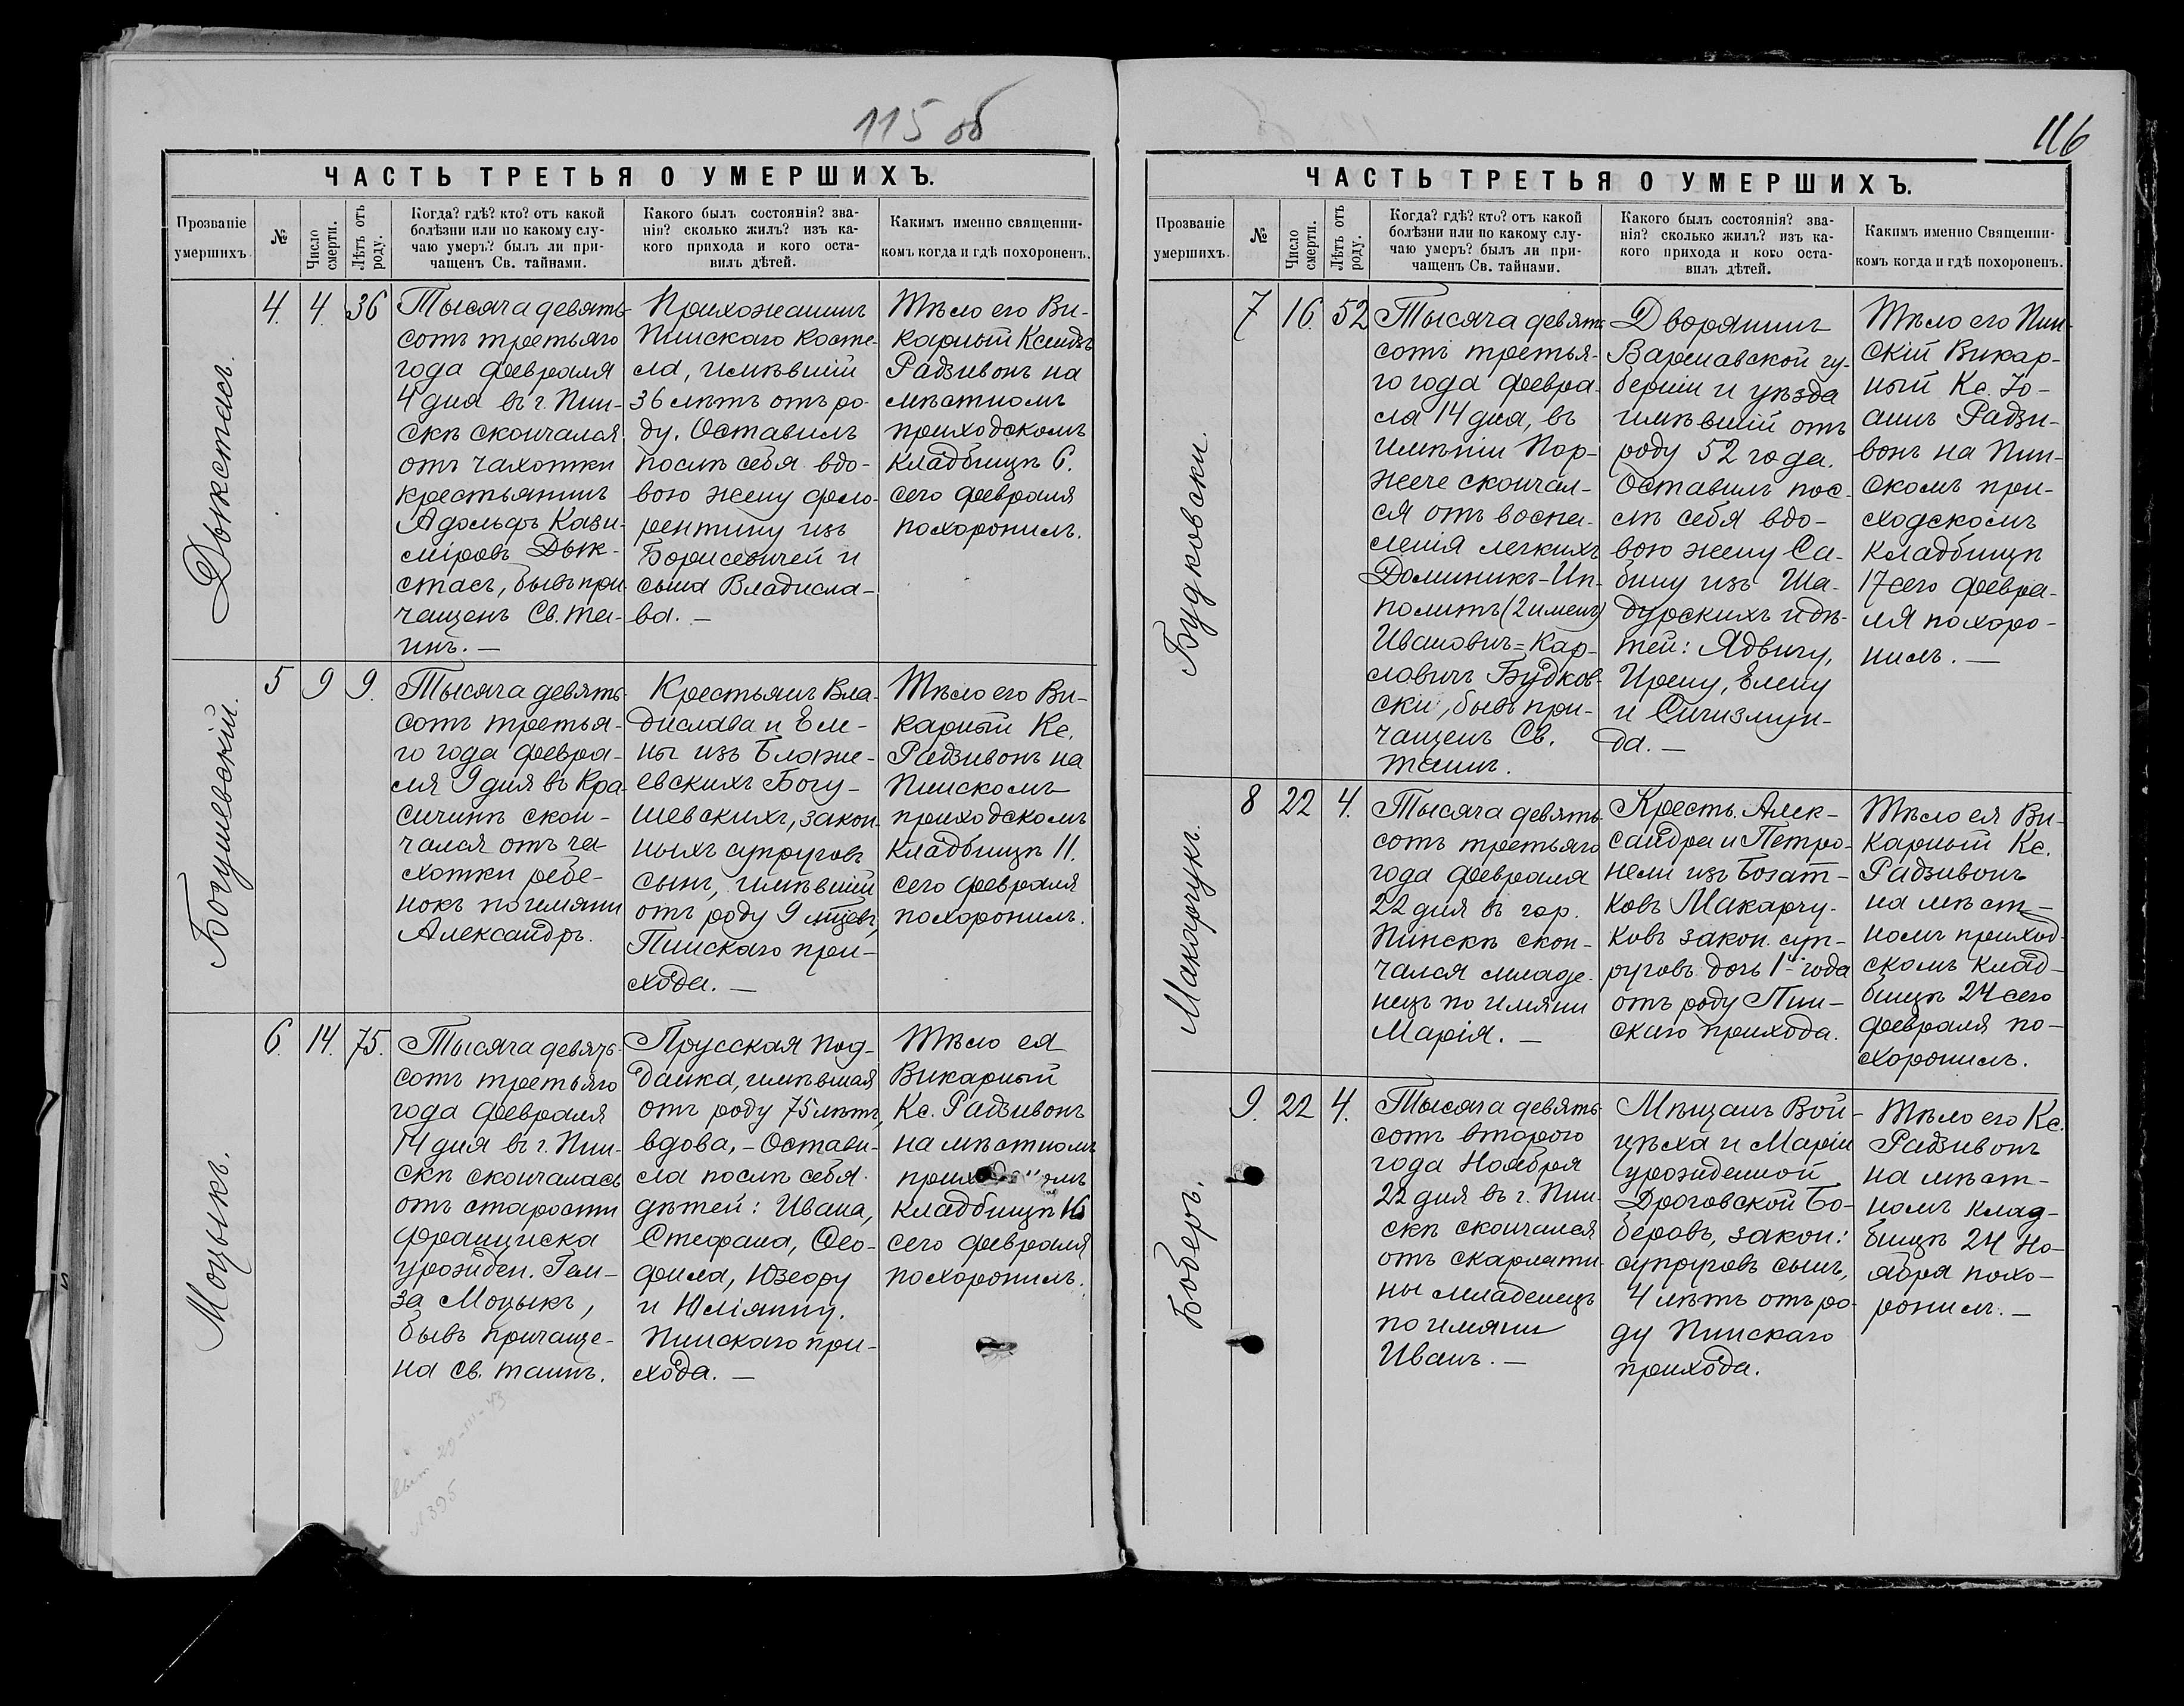 115 об
ЧАСТЬ ТРЕТЬЯ О УМЕРШИХЪ.
Прозваніе
умершихъ.
№
Число
смерти.
Лѣтъ отъ
роду.
Когда? гдѣ? кто? отъ какой
болѣзни или по какому слу-
чаю умеръ? былъ ли при-
чащенъ Св. тайнами.
Какого былъ состоянія? зва-
нія? сколько жилъ? изъ ка-
кого прихода и кого оста-
вилъ дѣтей.
Какимъ именно священни-
комъ когда и гдѣ похороненъ.
Дыкстасъ.
4.
4.
36
Тысяча девять-
сотъ третьяго
года февраля
4 дня въ г. Пин-
скѣ скончался
отъ чахотки
крестьянинъ
Адольфъ Кази-
міровъ Дык-
стасъ, бывъ при-
чащенъ Св. Та-
инъ. —
Прихожанинъ
Пинскаго косте-
ла, имѣвшій
36 лѣтъ отъ ро-
ду. Оставилъ
послѣ себя вдо-
вою жену Фло-
рентину изъ
Борисевичей и
сына Владисла-
ва. —
Тѣло его Ви-
карный Ксендзъ
Радзивонъ на
мѣстномъ
приходскомъ
кладбищѣ 6.
сего февраля
похоронилъ.
Богушевскій.
5
9
9.
Тысяча девять-
сотъ третья-
го года февра-
ля 9 дня въ Кра-
сичинѣ скон-
чался отъ ча-
хотки ребе-
нокъ по имяни
Александръ.
Крестьянъ Вла-
дислава и Еле-
ны изъ Блаже-
евскихъ Богу-
шевскихъ, закон-
ныхъ супруговъ
сынъ, имѣвшій
отъ роду 9 мцевъ,
Пинскаго при-
хода. —
Тѣло его Ви-
карный Кс.
Радзивонъ на
Пинскомъ
приходскомъ
кладбищѣ 11.
сего февраля
похоронилъ.
Моцыкъ.
6.
14.
75.
Тысяча девять-
сотъ третьяго
года февраля
14 дня въ г. Пин-
скѣ скончалась
отъ старости
Франциска
урожден. Ген-
за Моцыкъ,
бывъ причаще-
на Св. таинъ.
Прусская под-
данка, имѣвшая
отъ роду 75 лѣтъ,
вдова. — Остави-
ла послѣ себя
дѣтей: Ивана,
Стефана, Ѳео-
фила, Юзефу
и Юліянну.
Пинскаго при-
хода. —
Тѣло ея
Викарный
Кс. Радзивонъ
на мѣстномъ
кладбищѣ 16
сего февраля
похоронилъ.
29-III-43
№ 395
116
ЧАСТЬ ТРЕТЬЯ О УМЕРШИХЪ.
Прозваніе
умершихъ.
№
Число
смерти.
Лѣтъ отъ
роду.
Когда? гдѣ? кто? отъ какой
болѣзни или по какому слу-
чаю умеръ? былъ ли при-
чащенъ Св. тайнами.
Какого былъ состоянія? зва-
нія? сколько жилъ? изъ ка-
кого прихода и кого оста-
вилъ дѣтей.
Какимъ именно Священни-
комъ когда и гдѣ похороненъ.
Будковски.
7
16.
52
Тысяча девять-
сотъ третья-
го года февра-
ля 14 дня, въ
имѣніи Пор-
жече скончал-
ся отъ воспа-
ленія легкихъ
Доминикъ-Ип-
политъ (2 именъ)
Ивановичъ=Кар-
ловичъ Будков-
ски, бывъ при-
чащенъ Св.
таинъ.
Дворянинъ
Варшавской гу-
берніи и уѣзда
имѣвшій отъ
роду 52 года.
Оставилъ пос-
лѣ себя вдо-
вою жену Са-
бину изъ Ша-
дурскихъ и дѣ-
тей: Ядвигу,
Ирену, Елену
и Сигизмун-
да. —
Тѣло его Пин-
скій Викар-
ный Кс. Іо-
аннъ Радзи-
вонъ на Пин-
скомъ при-
ходскомъ
кладбищѣ
17 сего февра-
ля похоро-
нилъ. —
Макарчукъ.
8
22
4.
Тысяча девять-
сотъ третьяго
года февраля
22 дня въ гор.
Пинскѣ скон-
чался младе-
нецъ по имяни
Марія. —
Кресть. Алек-
сандра и Петро-
нели изъ Богат-
ковъ Макарчу-
ковъ закон. суп-
руговъ дочь 1¼ года
отъ роду Пин-
скаго прихода.
Тѣло ея Ви-
карный Кс.
Радзивонъ
на мѣст-
номъ приход-
скомъ клад-
бищѣ 24 сего
февраля по-
хоронилъ.
Боберъ.
9.
22
4.
Тысяча девять-
сотъ второго
года Ноября
22 дня въ г. Пин-
скѣ скончался
отъ скарляти-
ны младенецъ
по имяни
Иванъ. —
Мѣщанъ Вой-
цѣха и Маріи
урожденной
Дроговской Бо-
беровъ, закон:
супруговъ сынъ,
4 лѣтъ отъ ро-
ду Пинскаго
прихода.
Тѣло его Кс.
Радзивонъ
на мѣст-
номъ клад-
бищѣ 24 Но-
ября похо-
ронилъ. —